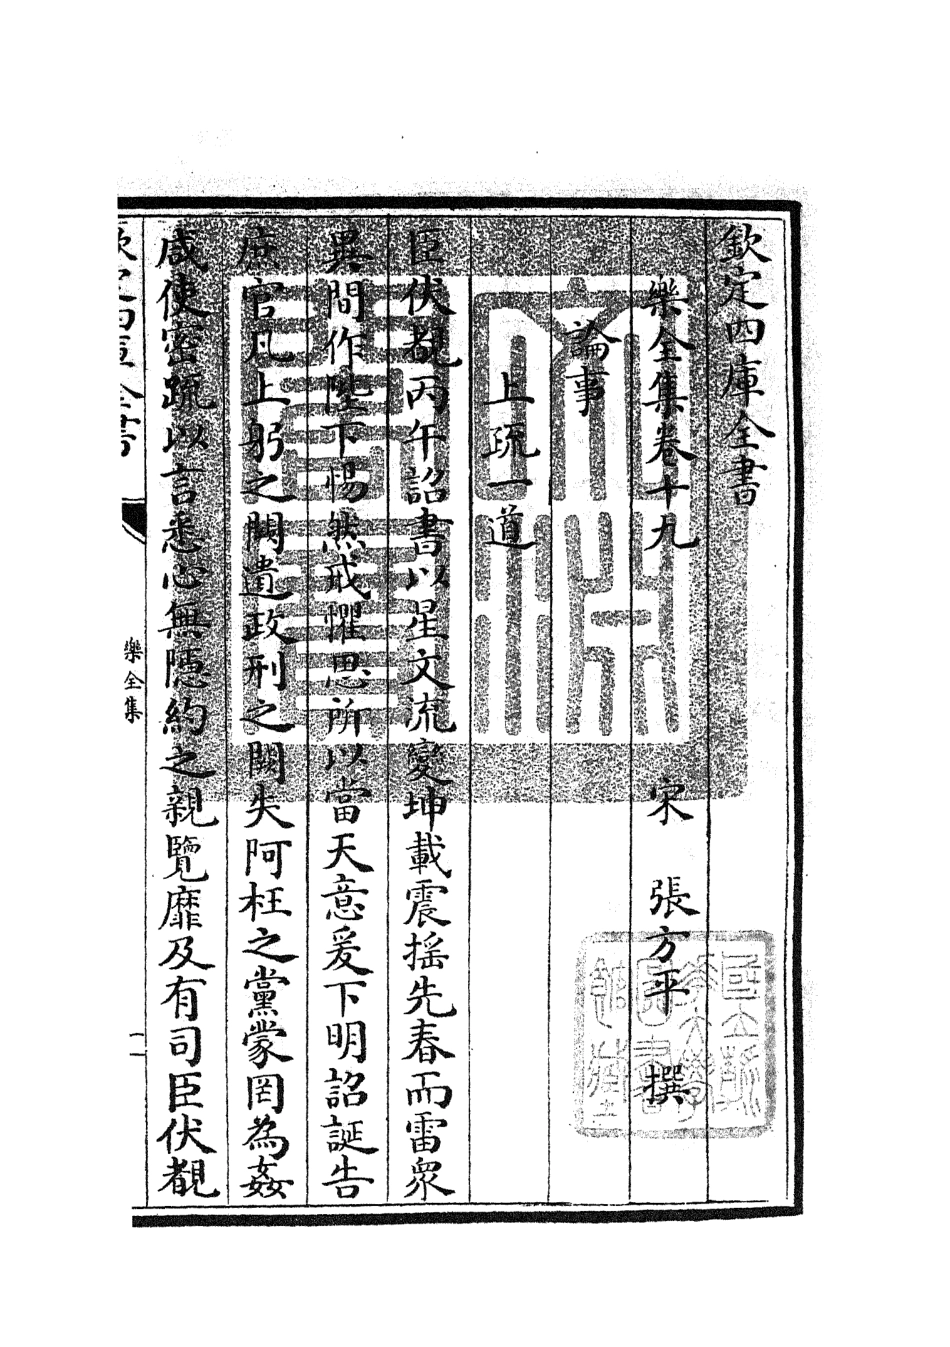 欽定四庫全書
樂全集卷十九　宋　張方平　撰
論事
上疏一道
臣伏覩丙午詔書以星文流變坤載震摇先春而雷衆
異間作陛下惕然戒懼思所以當天意爰下明詔誕告
庶官凡上躬之闕遺政刑之闕失阿枉之黨蒙罔為姦
咸使密疏以言悉心無隠約之親覽靡及有司臣伏覩
欽定四庫全書
樂全集
一